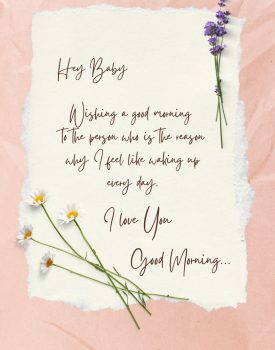 Hey Baby
Wishing a good morning
to the person who is the reason
why I feel like waking up
every day.
I love You
Good Morning...